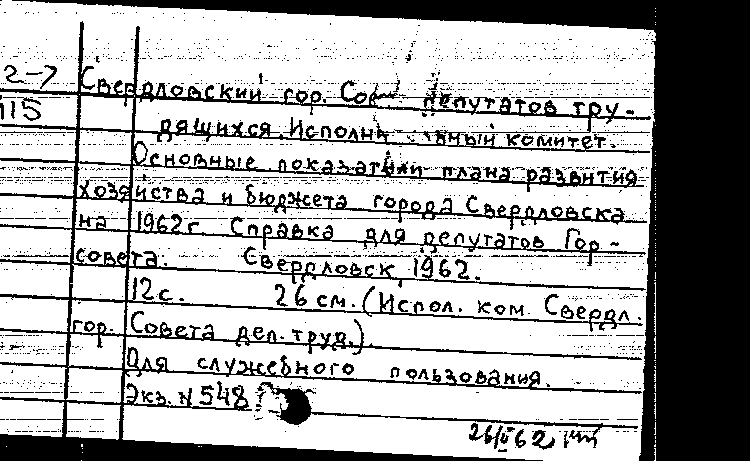 2-7 Свердловский гор. Сов депутатов тру-
115 дящихся. Исполнительный комитет.
Основные показатели плана развития
хозяйства и бюджета города Свердловска
на 1962 г. Справка для депутатов Гор-
совета. Свердловск, 1962.
12 с. 26 см. (Испол. ком. Свердл.
гор. Совета деп. труд.).
Для служебного пользования.
Экз. N 548
26/II 62